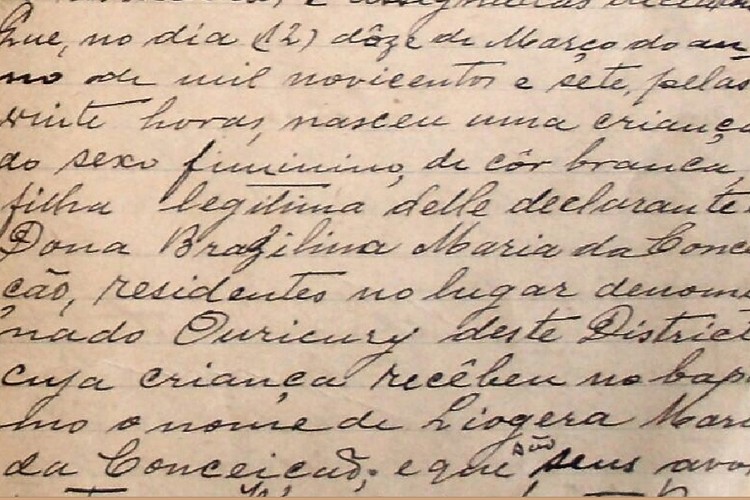 que, no dia (12) dôze de Março do an
no de mil novicentos e séte, pelas
vinte horas, nasceu uma criança
do sexo fiminino, de côr branca,
filha legitima delle declarante
Dona Brazilina Maria da Conce
cão, residentes no lugar denomi
nado Ouricury deste District
cuja criança recêbeu no bap
mo o nome de Liogera Mari
da Conceicaõ; e que são seus avo